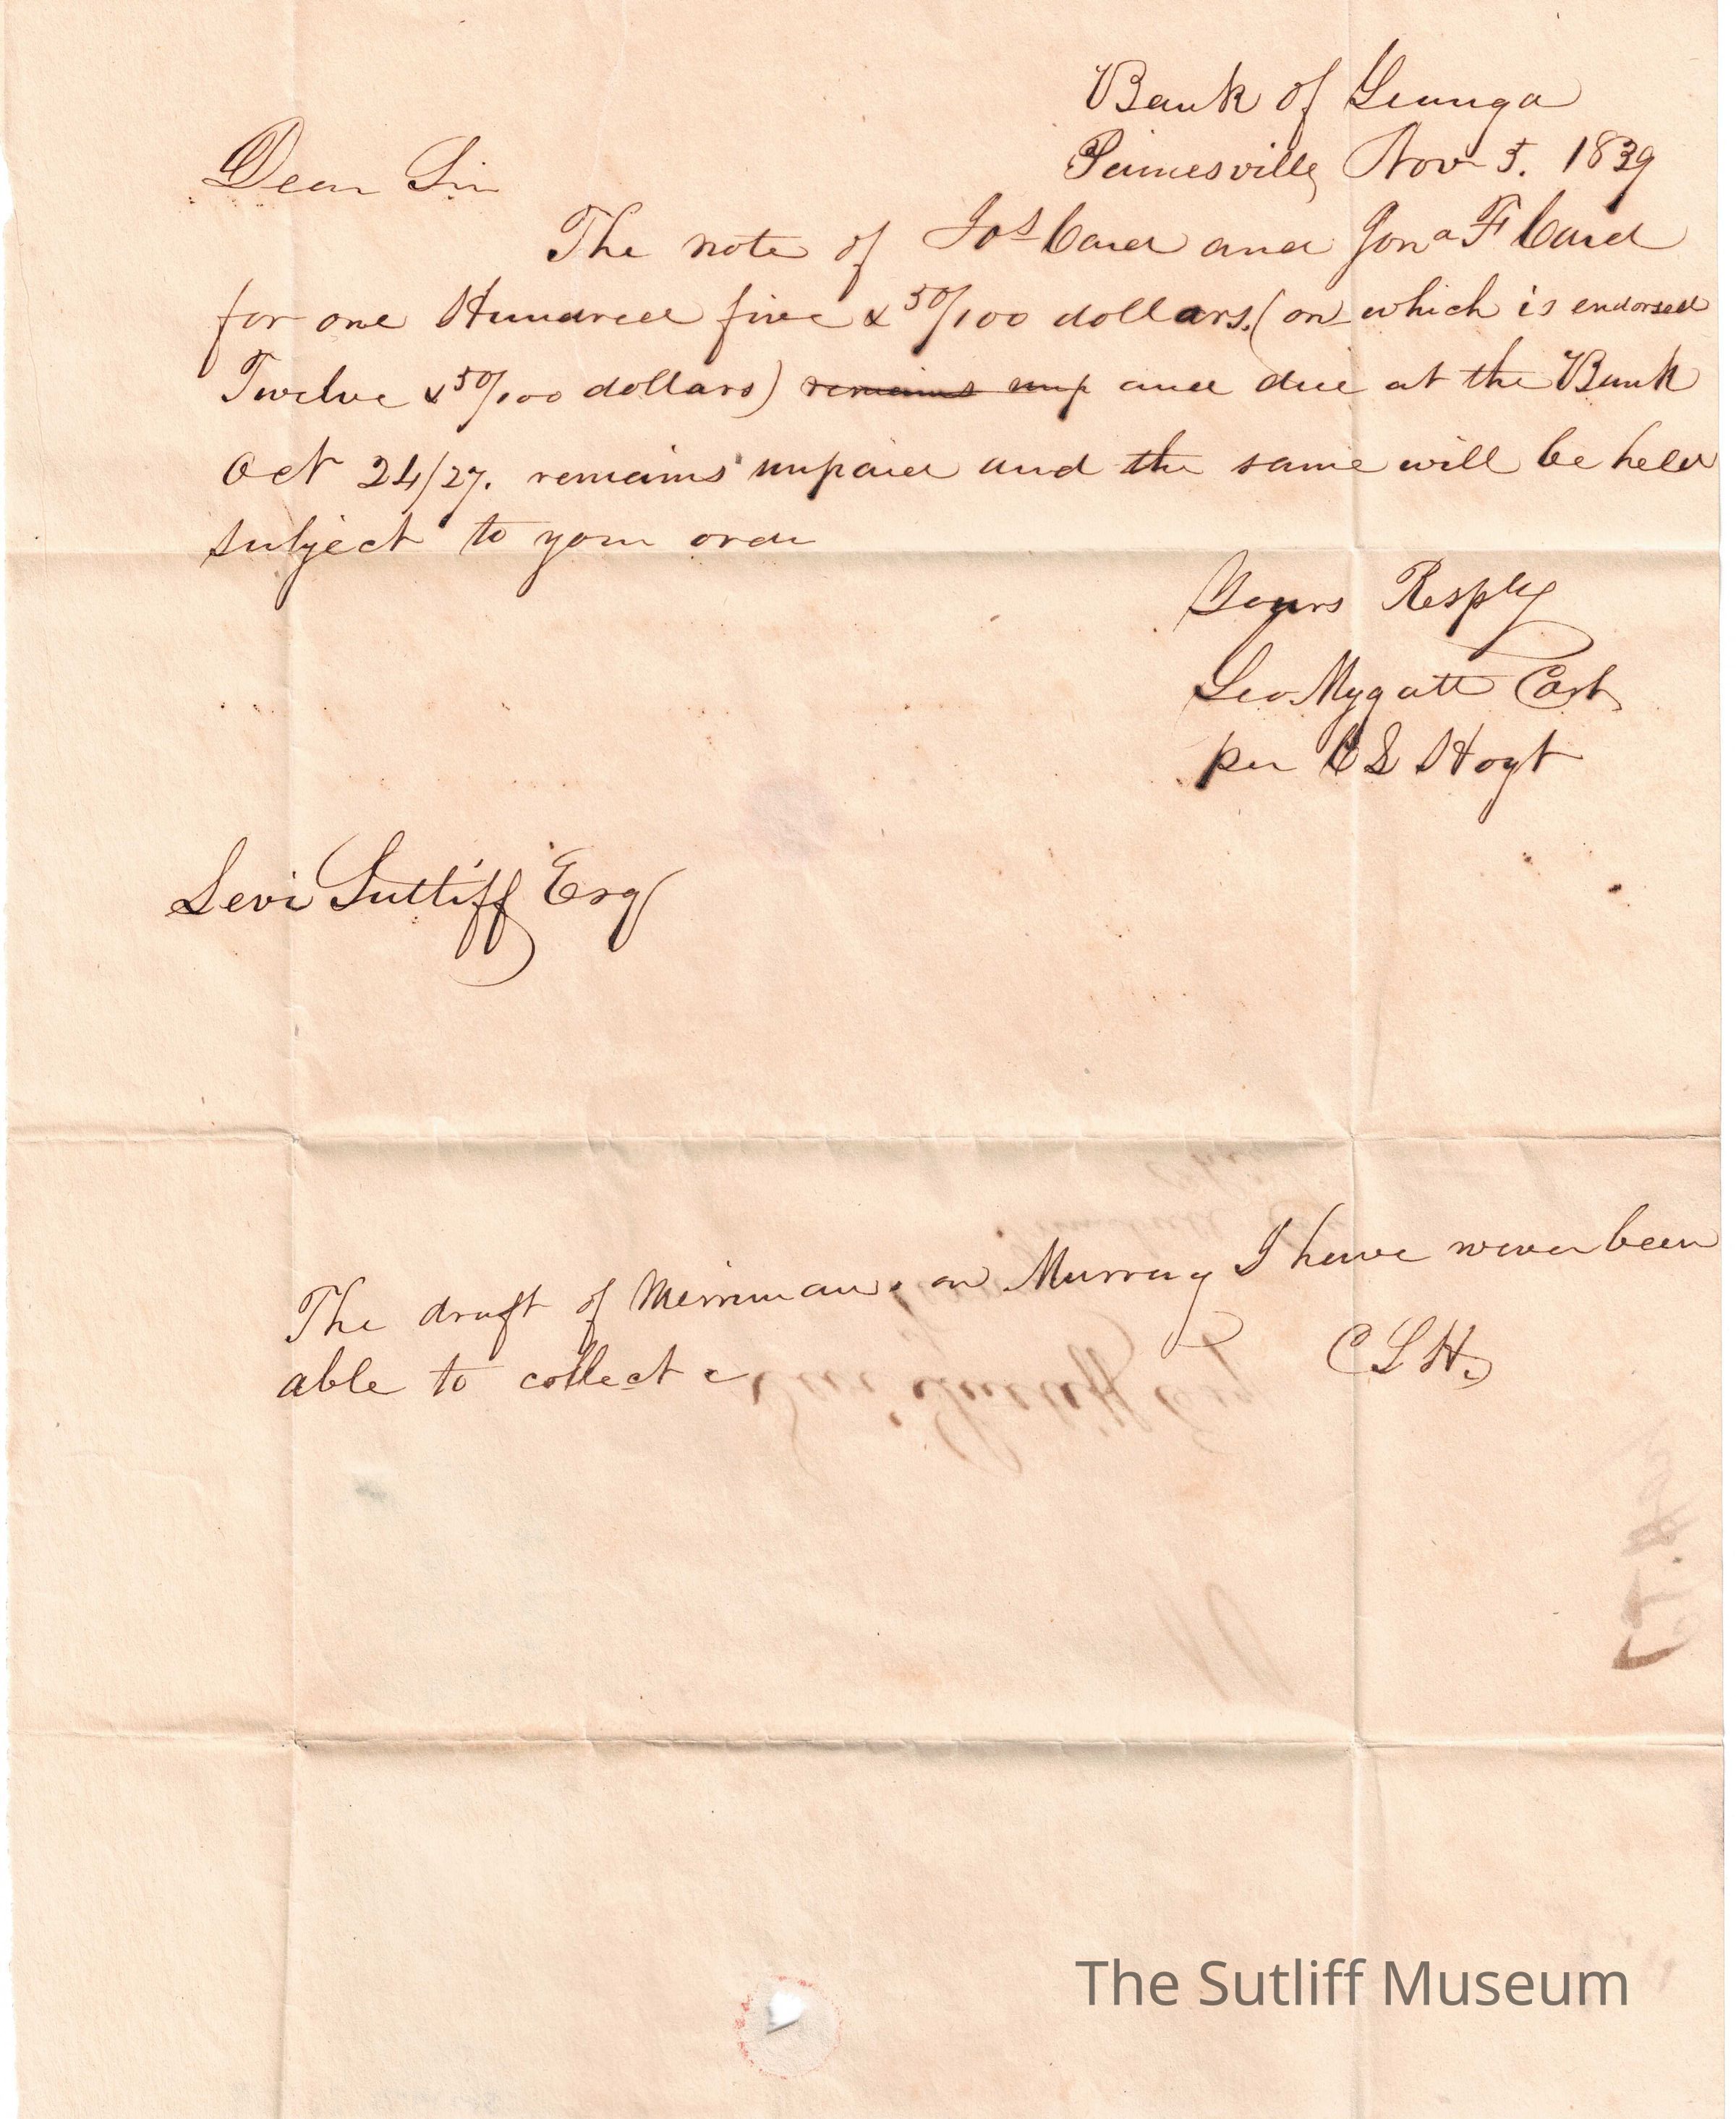 Bank of Geauga
Painesville, Nov 5. 1839
Dear Sir
The note of Jos Card and Jona F Card
for one Hundred five & 50/100 dollars (on which is endorsed
Twelve & 50/100 dollars) remains unp and due at the Bank
Oct 24/27. remains unpaid and the same will be held
subject to your order
Yours Resply
Geo Mygatt Cash
per C S Hoyt
Levi Sutliff Esq
The draft of Merriman on Murray I have never been
able to collect
C S H.
Levi Sutliff Esq
The Sutliff Museum